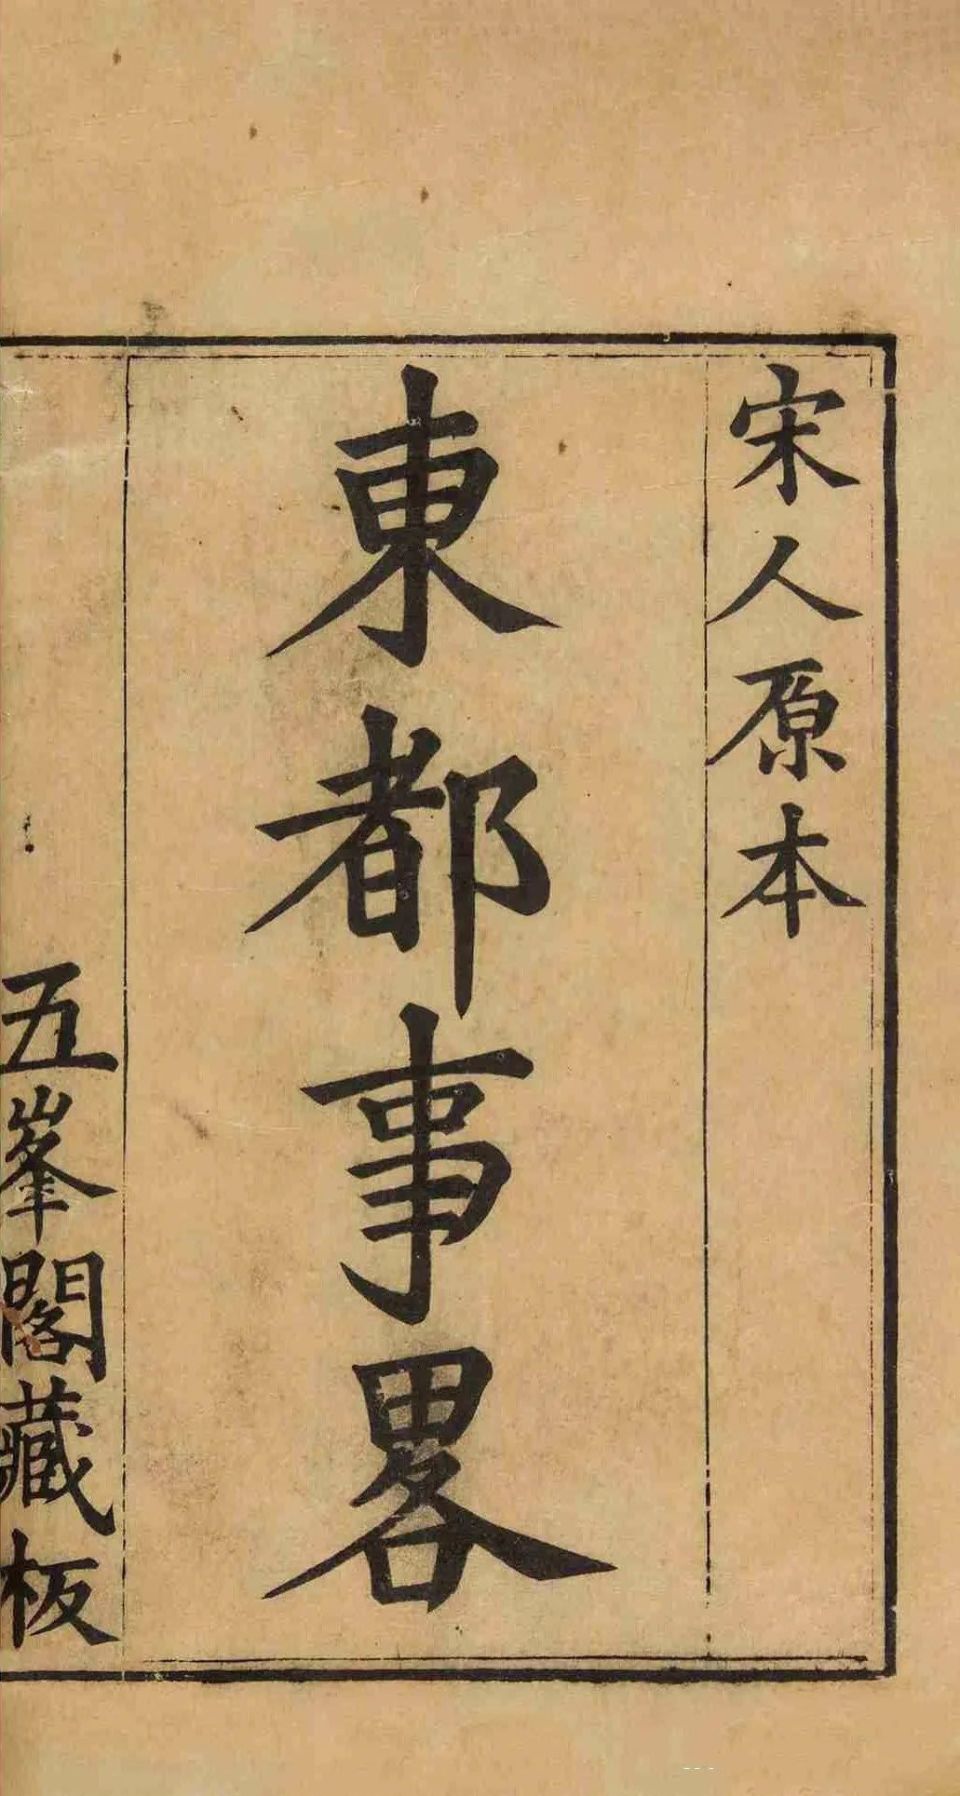 宋人原本
東都事畧
五峯閣藏板